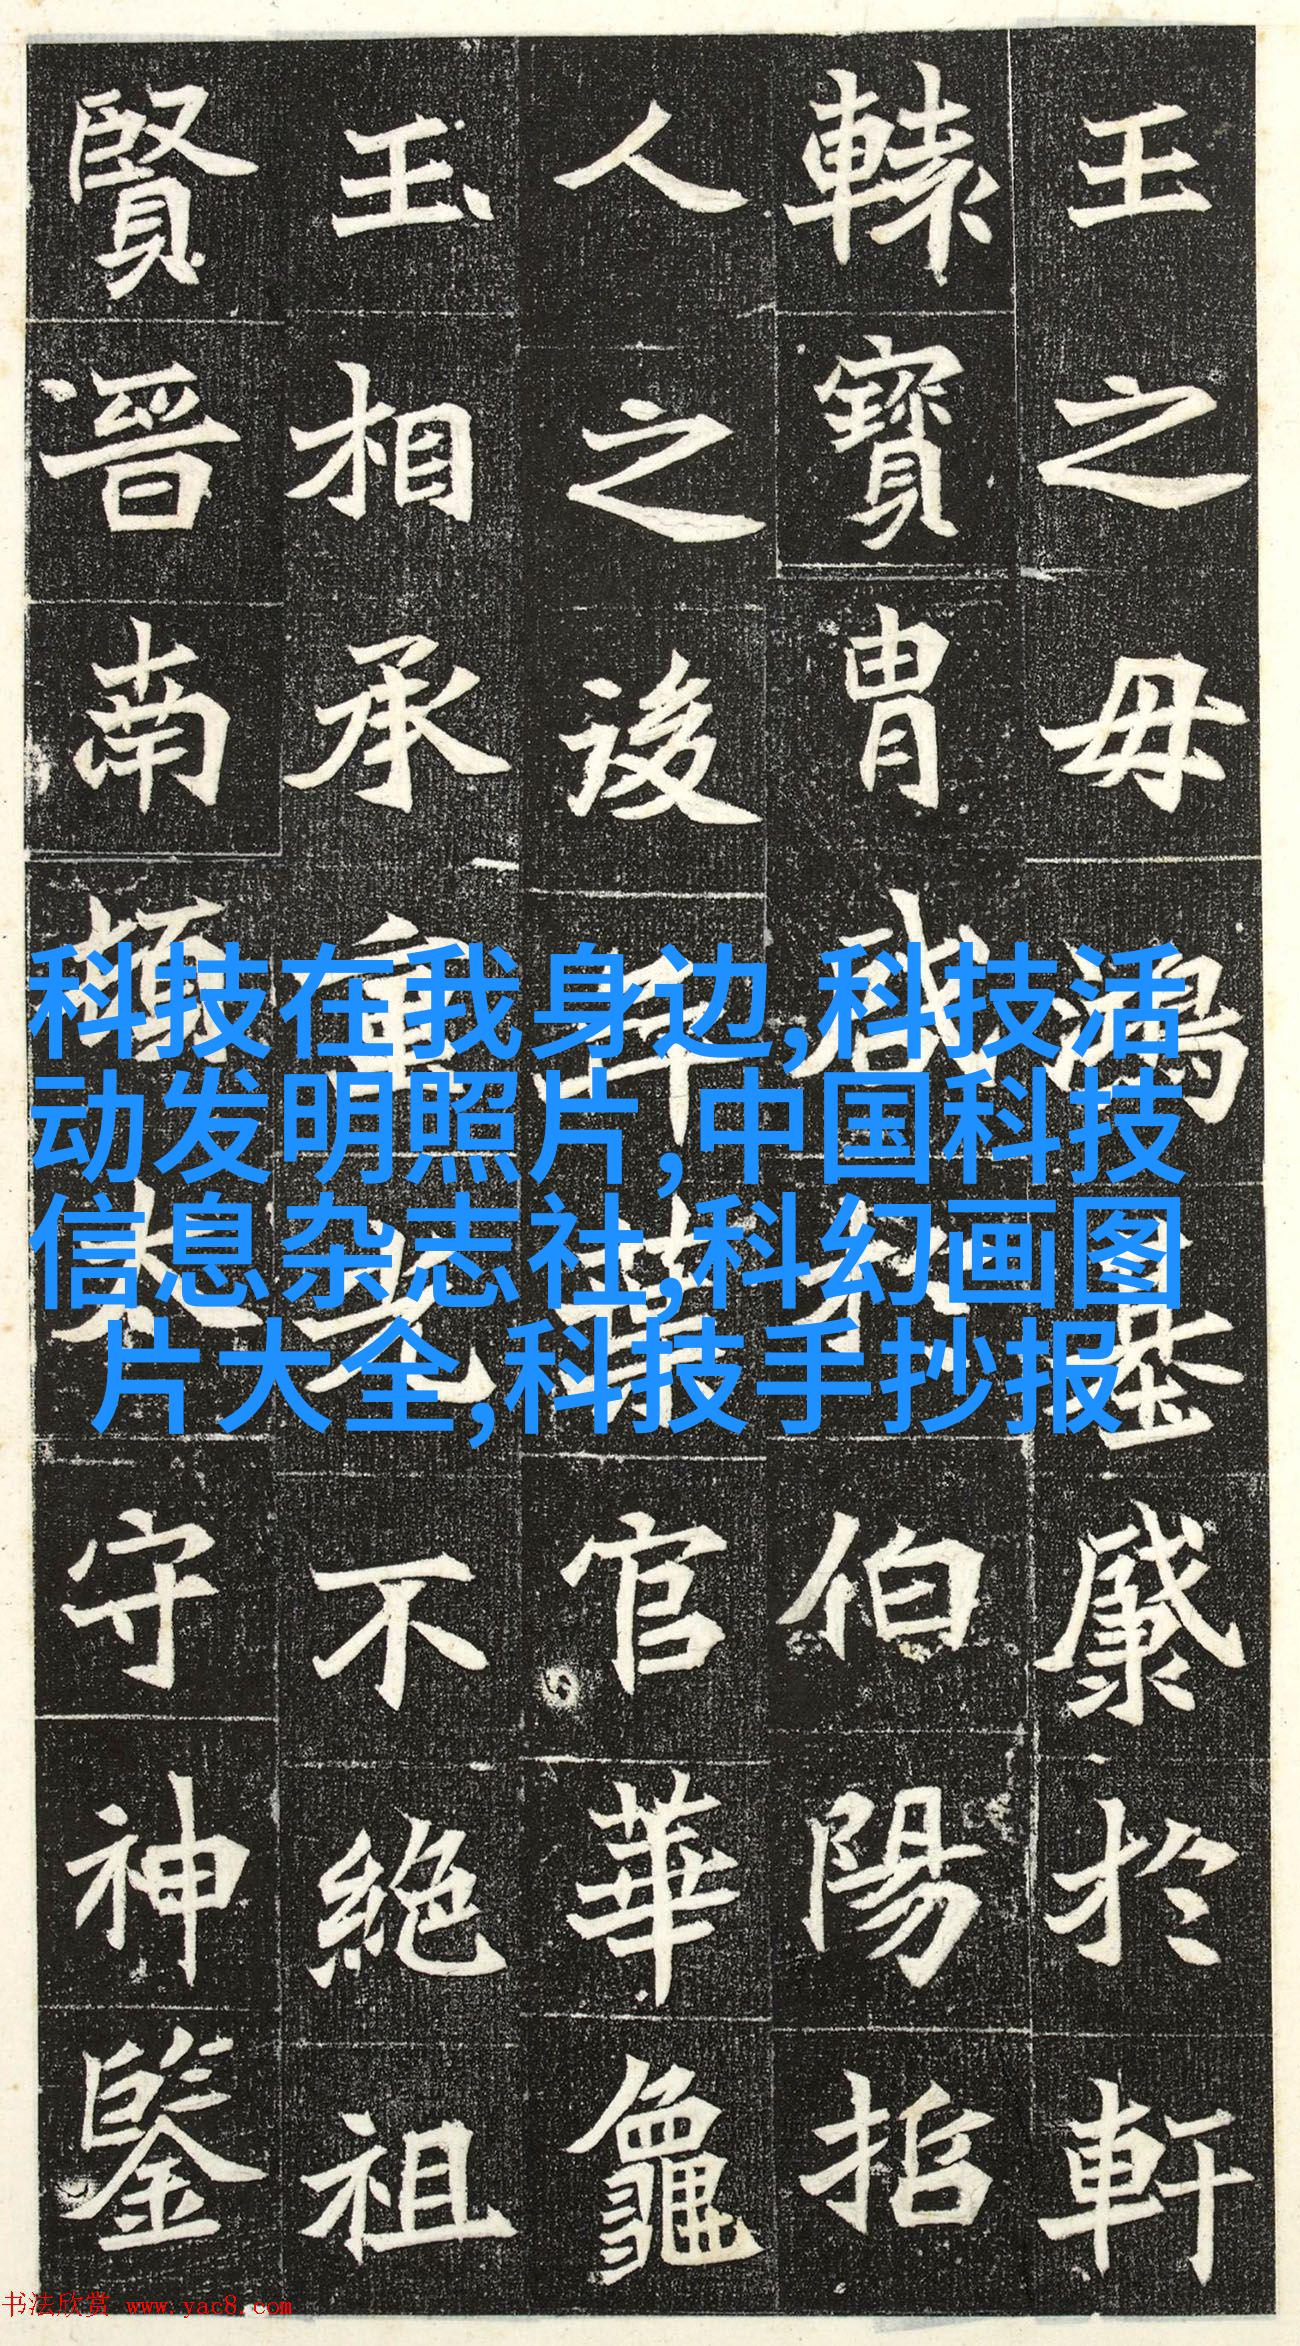 王之毋鴻基於軒
轅寶冑啟於伯陽指
人之後官華龜
玉相承重光不絕祖
賢晉南頓太守神鑒
科技在我身边,科技活
动发明照片,中国科技
信息杂志社,科幻画图
片大全,科技手抄报
书法欣赏 www.yac8.com